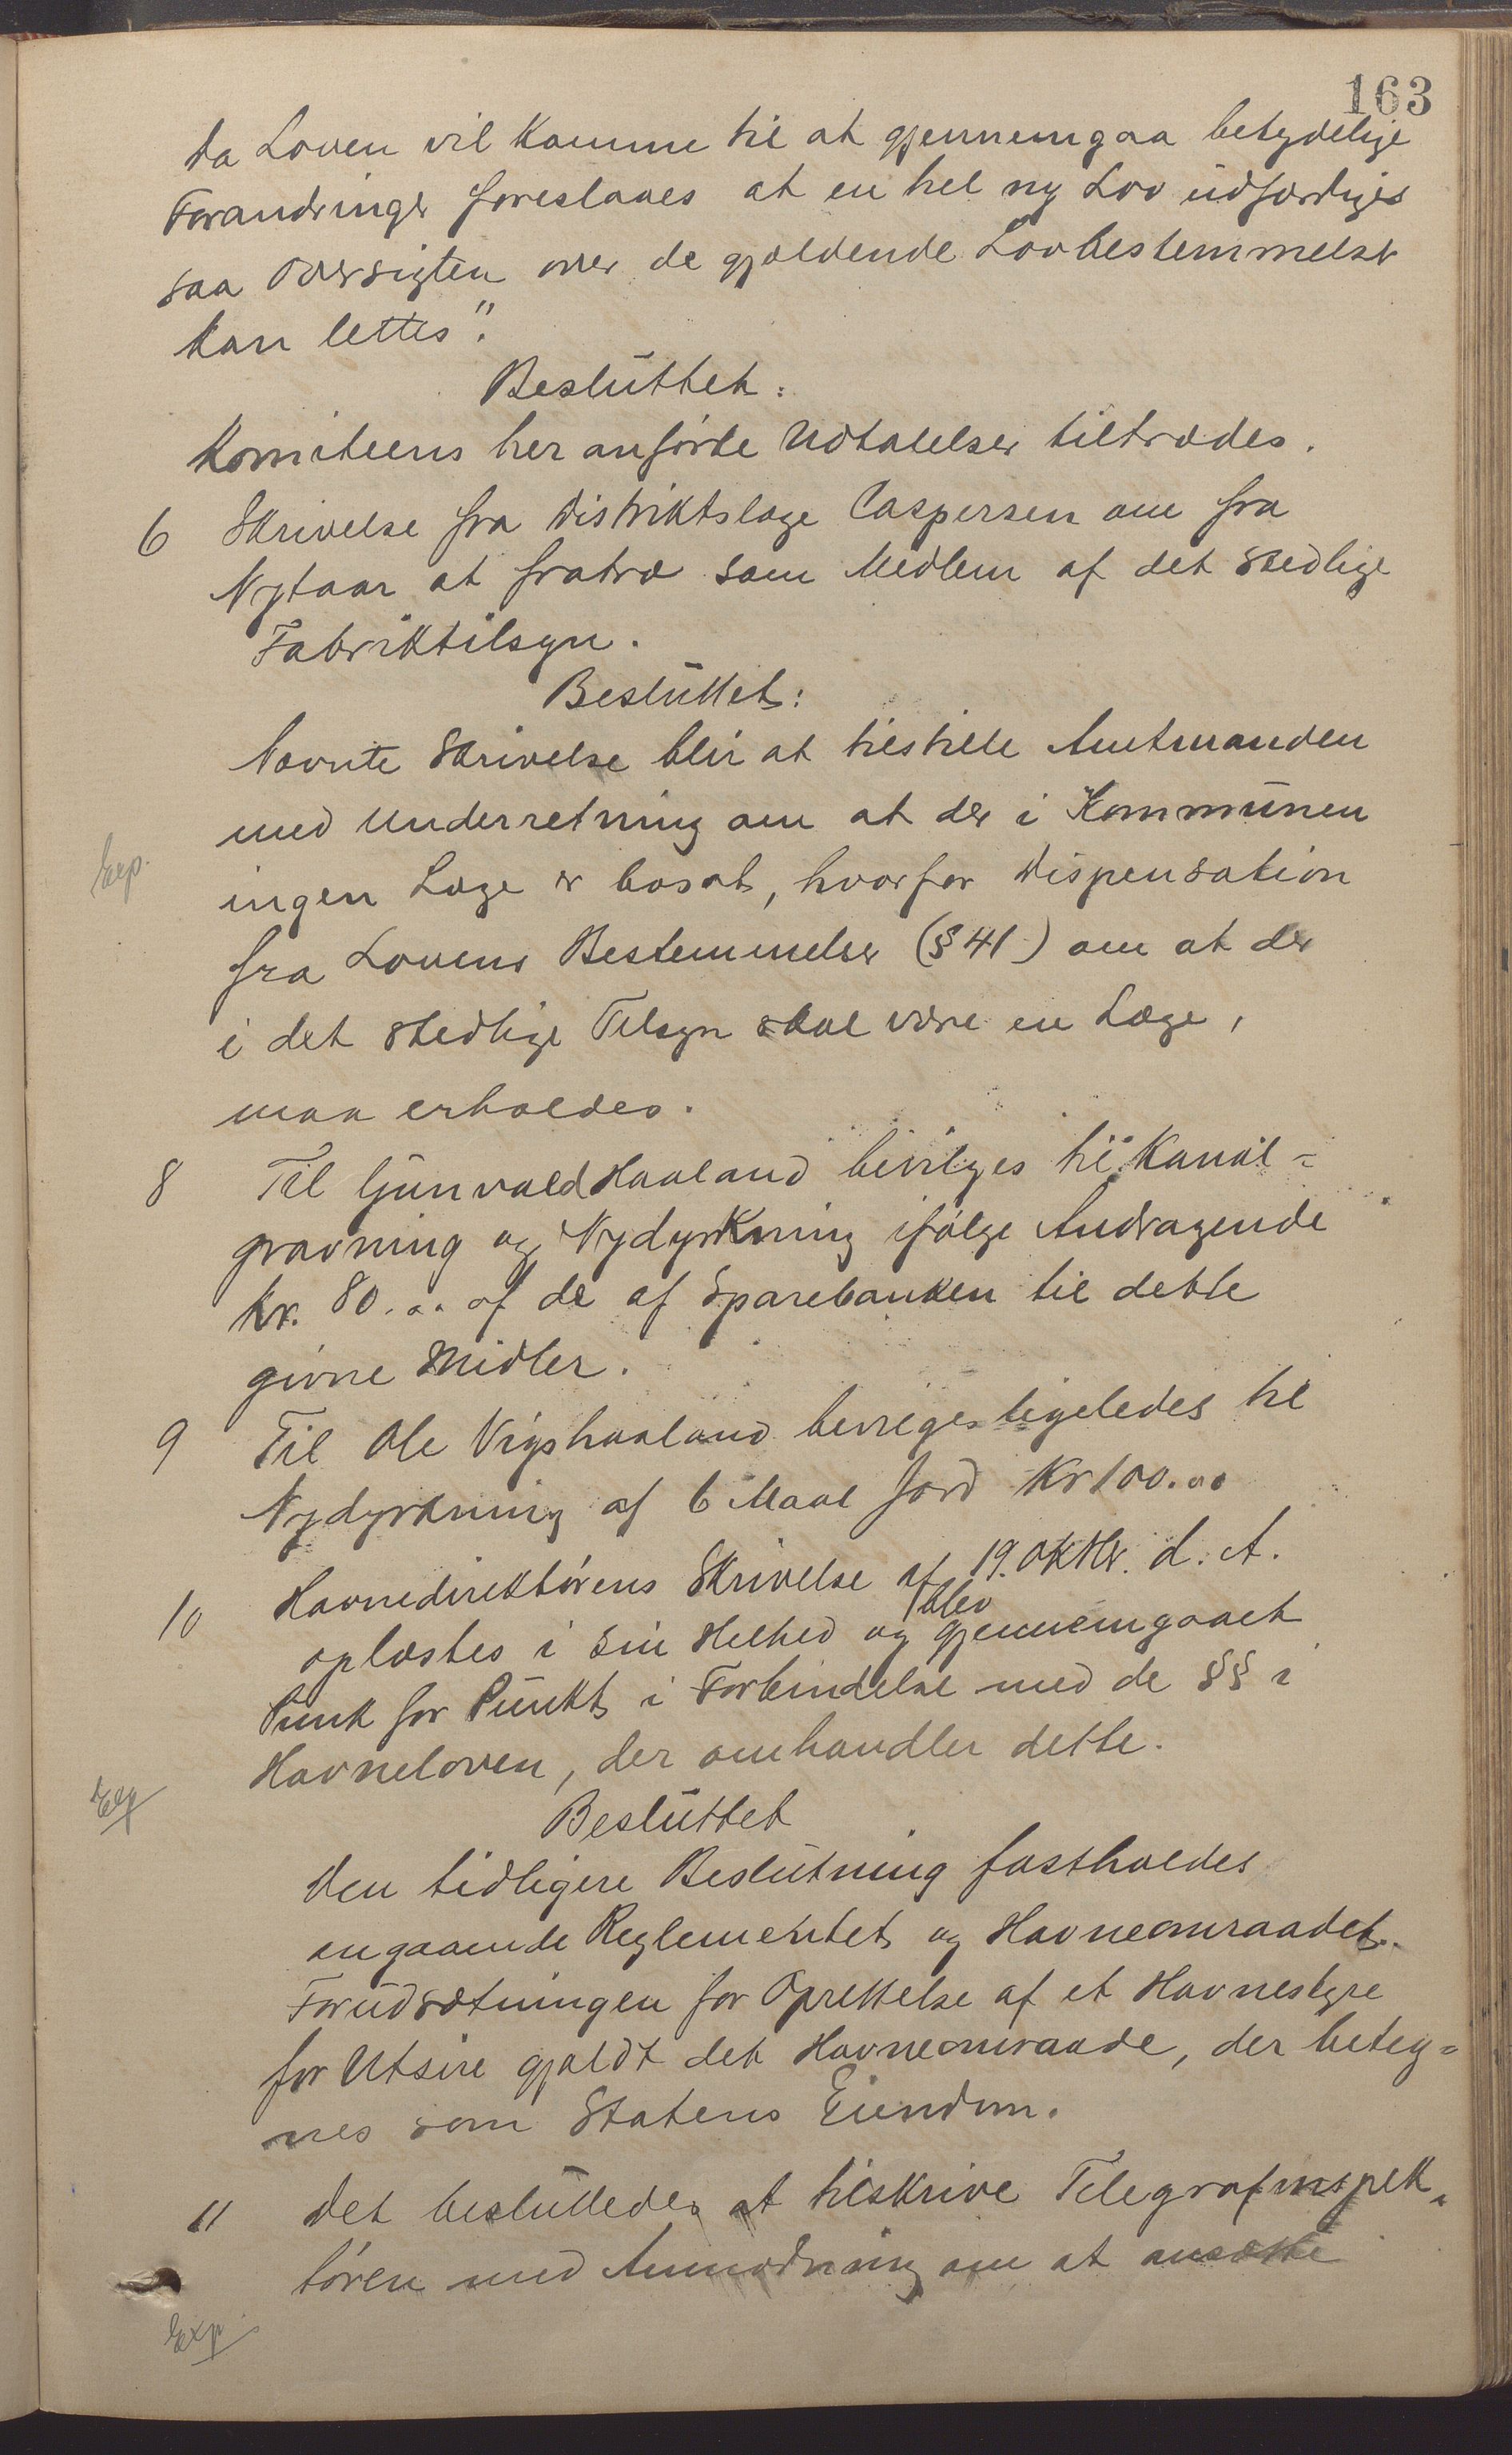 163
da Loven vil komme til at gjennemgaa betydelige
Forandringer foreslaaes at en hel ny Lov udfærdiges
saa Oversigten over de gjældende Lovbestemmelser
kan lettes".
Besluttet:
Komiteens her anførte Udtalelser tiltrædes.
6 Skrivelse fra Distriktslæge Caspersen om fra
Nytaar at fratræ som Medlem af det stedlige
Fabriktilsyn.
Besluttet:
Nævnte Skrivelse blir at tilstille Amtmanden
med Underretning om at der i Kommunen
Exp.
ingen Læge er bosat, hvorfor Dispensation
fra Lovens Bestemmelser (§ 41) om at der
i det stedlige Tilsyn skal være en Læge,
maa erholdes.
8 Til Gunvald Haaland bevilges til Kanal-
gravning og Nydyrkning ifølge Andragende
kr. 80.00 af de af Sparebanken til dette
givne Midler.
9 Til Ole Vigshaaland beviges ligeledes til
Nydyrkning af 6 Maal Jord Kr 100.00
10 Havnedirektørens Skrivelse af 19. Oktbr. d. A.
oplæstes i sin Helhed og blev gjennemgaaet
Punk for Punkt i Forbindelse med de §§ i
Havneloven, der omhandler dette.
Exp
Besluttet
Den tidligere Beslutning fastholdes
angaaende Reglementet og Havneomraadet.
Forudsætningen for Oprettelse af et Havnestyre
for Utsire gjaldt det Havneomraade, der beteg-
nes som Statens Eiendom.
11 Det besluttedes at tilskrive Telegrafinspek-
tøren med Anmodning om at ansætte
Exp.